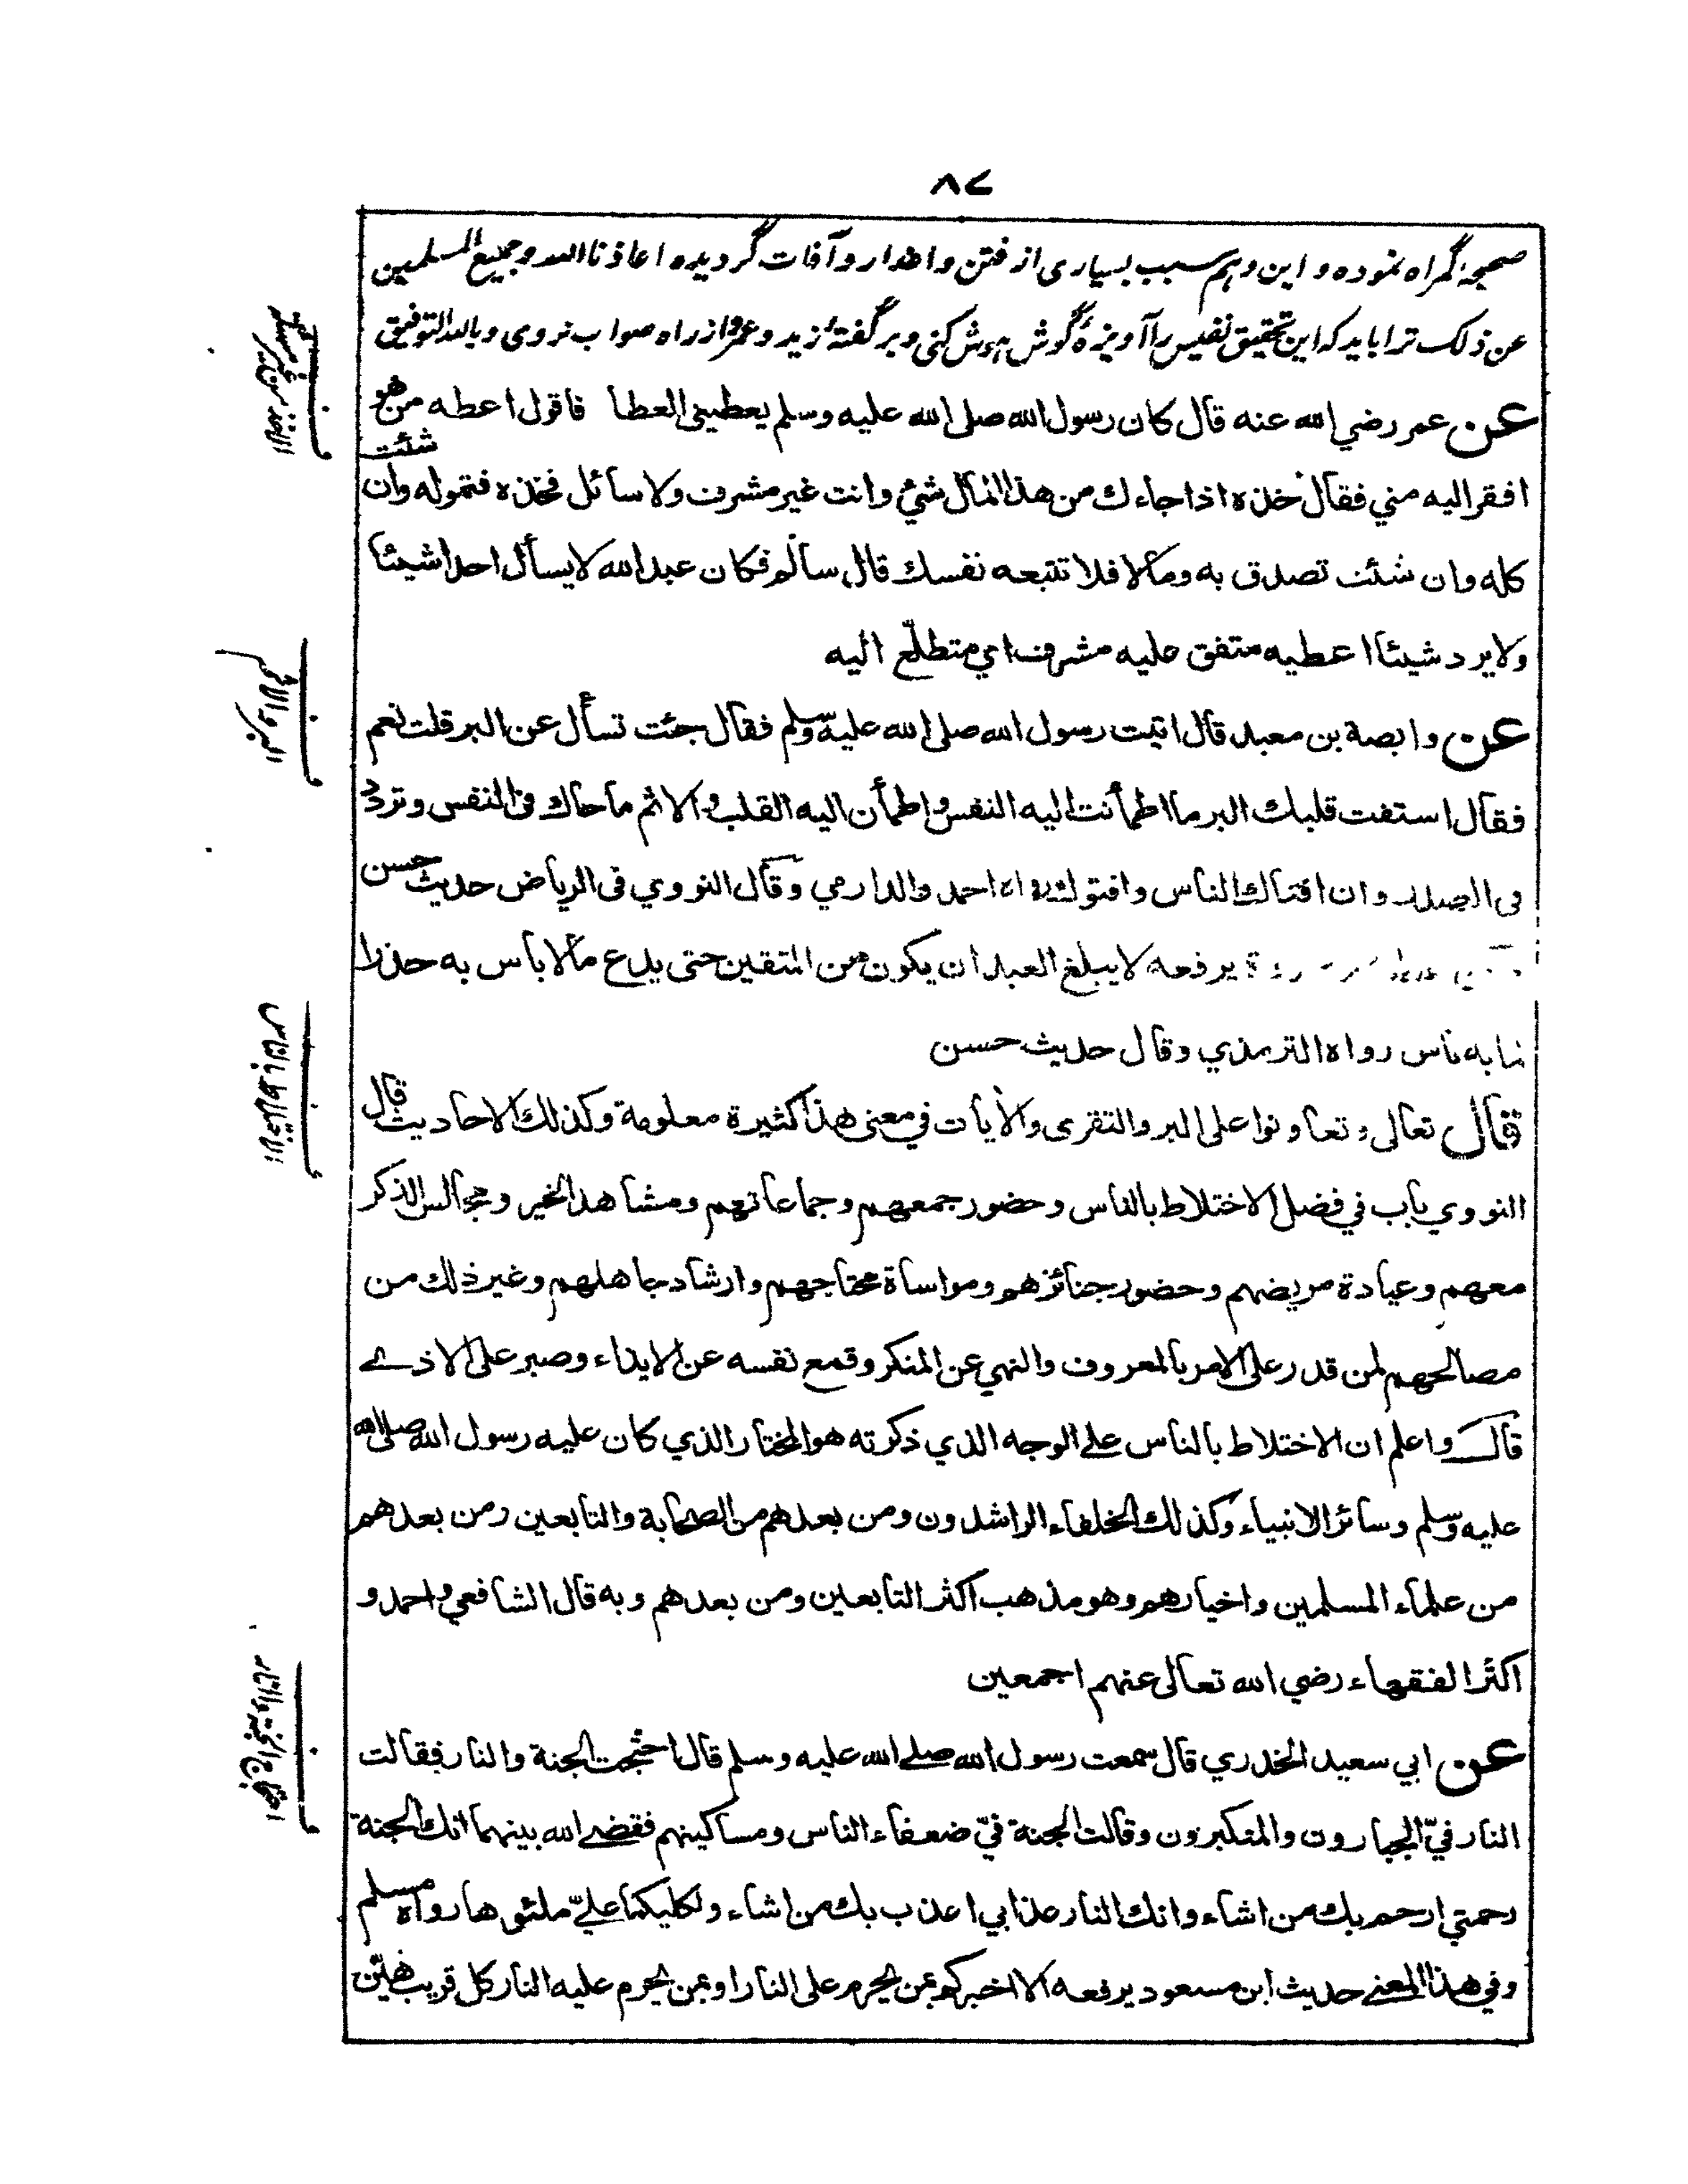 ٨٧
صحیحه گمراه نموده و این وهم سبب بسیاری از فتن و اضرار و آفات گردیده اعاذنا الله و جمیع المسلمین
عن ذلک ترا باید که این تحقیق نفیس را آویزهٔ گوش هوش کنی و بر گفتهٔ زید و عمرو از راه صواب نروی و بالله التوفیق
عن عمر رضي الله عنه قال كان رسول الله صلى الله عليه وسلم يعطيني العطا فاقول اعطه من هو
افقر اليه مني فقال خذه اذا جاءك من هذا المال شيء وانت غير مشرف ولا سائل فخذه فتموله وان شئت
كله وان شئت تصدق به ومالا فلا تتبعه نفسك قال سالم فكان عبد الله لا يسأل احدا شيئا
ولا يرد شيئا اعطيه متفق عليه مشرف اي متطلع اليه
عن وابصة بن معبد قال اتيت رسول الله صلى الله عليه وسلم فقال جئت تسأل عن البر قلت نعم
فقال استفت قلبك البر ما اطمأنت اليه النفس واطمأن اليه القلب والاثم ما حاك في النفس وتردد
في الصدر وان افتاك الناس وافتوك رواه احمد والدارمي وقال النووي في الرياض حديث حسن
يرفعه لا يبلغ العبد ان يكون من المتقين حتى يدع مالا بأس به حذرا
مابه بأس رواه الترمذي وقال حديث حسن
قال تعالى وتعاونوا على البر والتقوى والأيات في معنى هذا كثيرة معلومة وكذلك الاحاديث قال
النووي باب في فضل الاختلاط بالناس وحضور جمعهم وجماعاتهم ومشاهد الخير ومجالس الذكر
معهم وعيادة مريضهم وحضور جنائزهم ومواساة محتاجهم وارشاد جاهلهم وغير ذلك من
مصالحهم لمن قدر على الامر بالمعروف والنهي عن المنكر وقمع نفسه عن الايذاء وصبر على الاذے
قال واعلم ان الاختلاط بالناس علے الوجه الذي ذكرته هو المختار الذي كان عليه رسول الله صلى الله
عليه وسلم وسائر الانبياء وكذلك الخلفاء الراشدون ومن بعدهم من الصحابة والتابعين ومن بعدهم
من علماء المسلمين واخيارهم وهو مذهب اكثر التابعين ومن بعدهم وبه قال الشافعي واحمد و
اكثر الفقهاء رضي الله تعالى عنهم اجمعين
عن ابي سعيد الخدري قال سمعت رسول الله صلے الله عليه وسلم قال احتجت الجنة والنار فقالت
النار فيّ الجبارون والمتكبرون وقالت الجنة فيّ ضعفاء الناس ومساكينهم فقضے الله بينهما انك الجنة
رحمتي ارحم بك من اشاء وانك النار عذابي اعذب بك من اشاء ولكليكما عليّ ملئوها رواه مسلم
وفي هذا المعنے حديث ابن مسعود يرفعه الا اخبركم بمن يحرم على النار او بمن يحرم عليه النار كل قريب هيّن
البر والاثم
الاختلاط بالناس
احتجاج الجنة والنار